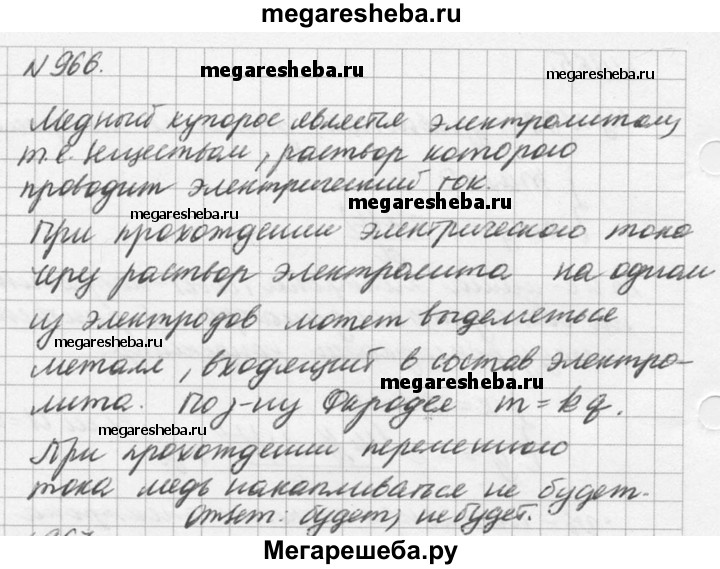 megaresheba.ru
N 966.
megaresheba.ru
megaresheba.ru
Медный купорос является электролитом,
т.е. веществом, раствор которого
проводит электрический ток.
megaresheba.ru
megaresheba.ru
При прохождении электрического тока
через раствор электролита на одном
из электродов может выделиться
megaresheba.ru
металл, входящий в состав электро-
megaresheba.ru
лита. По з-ну Фарадея m = kq.
megaresheba.ru
При прохождении переменного
тока медь накапливаться не будет.
Ответ: будет, не будет.
Мегарешеба.ру